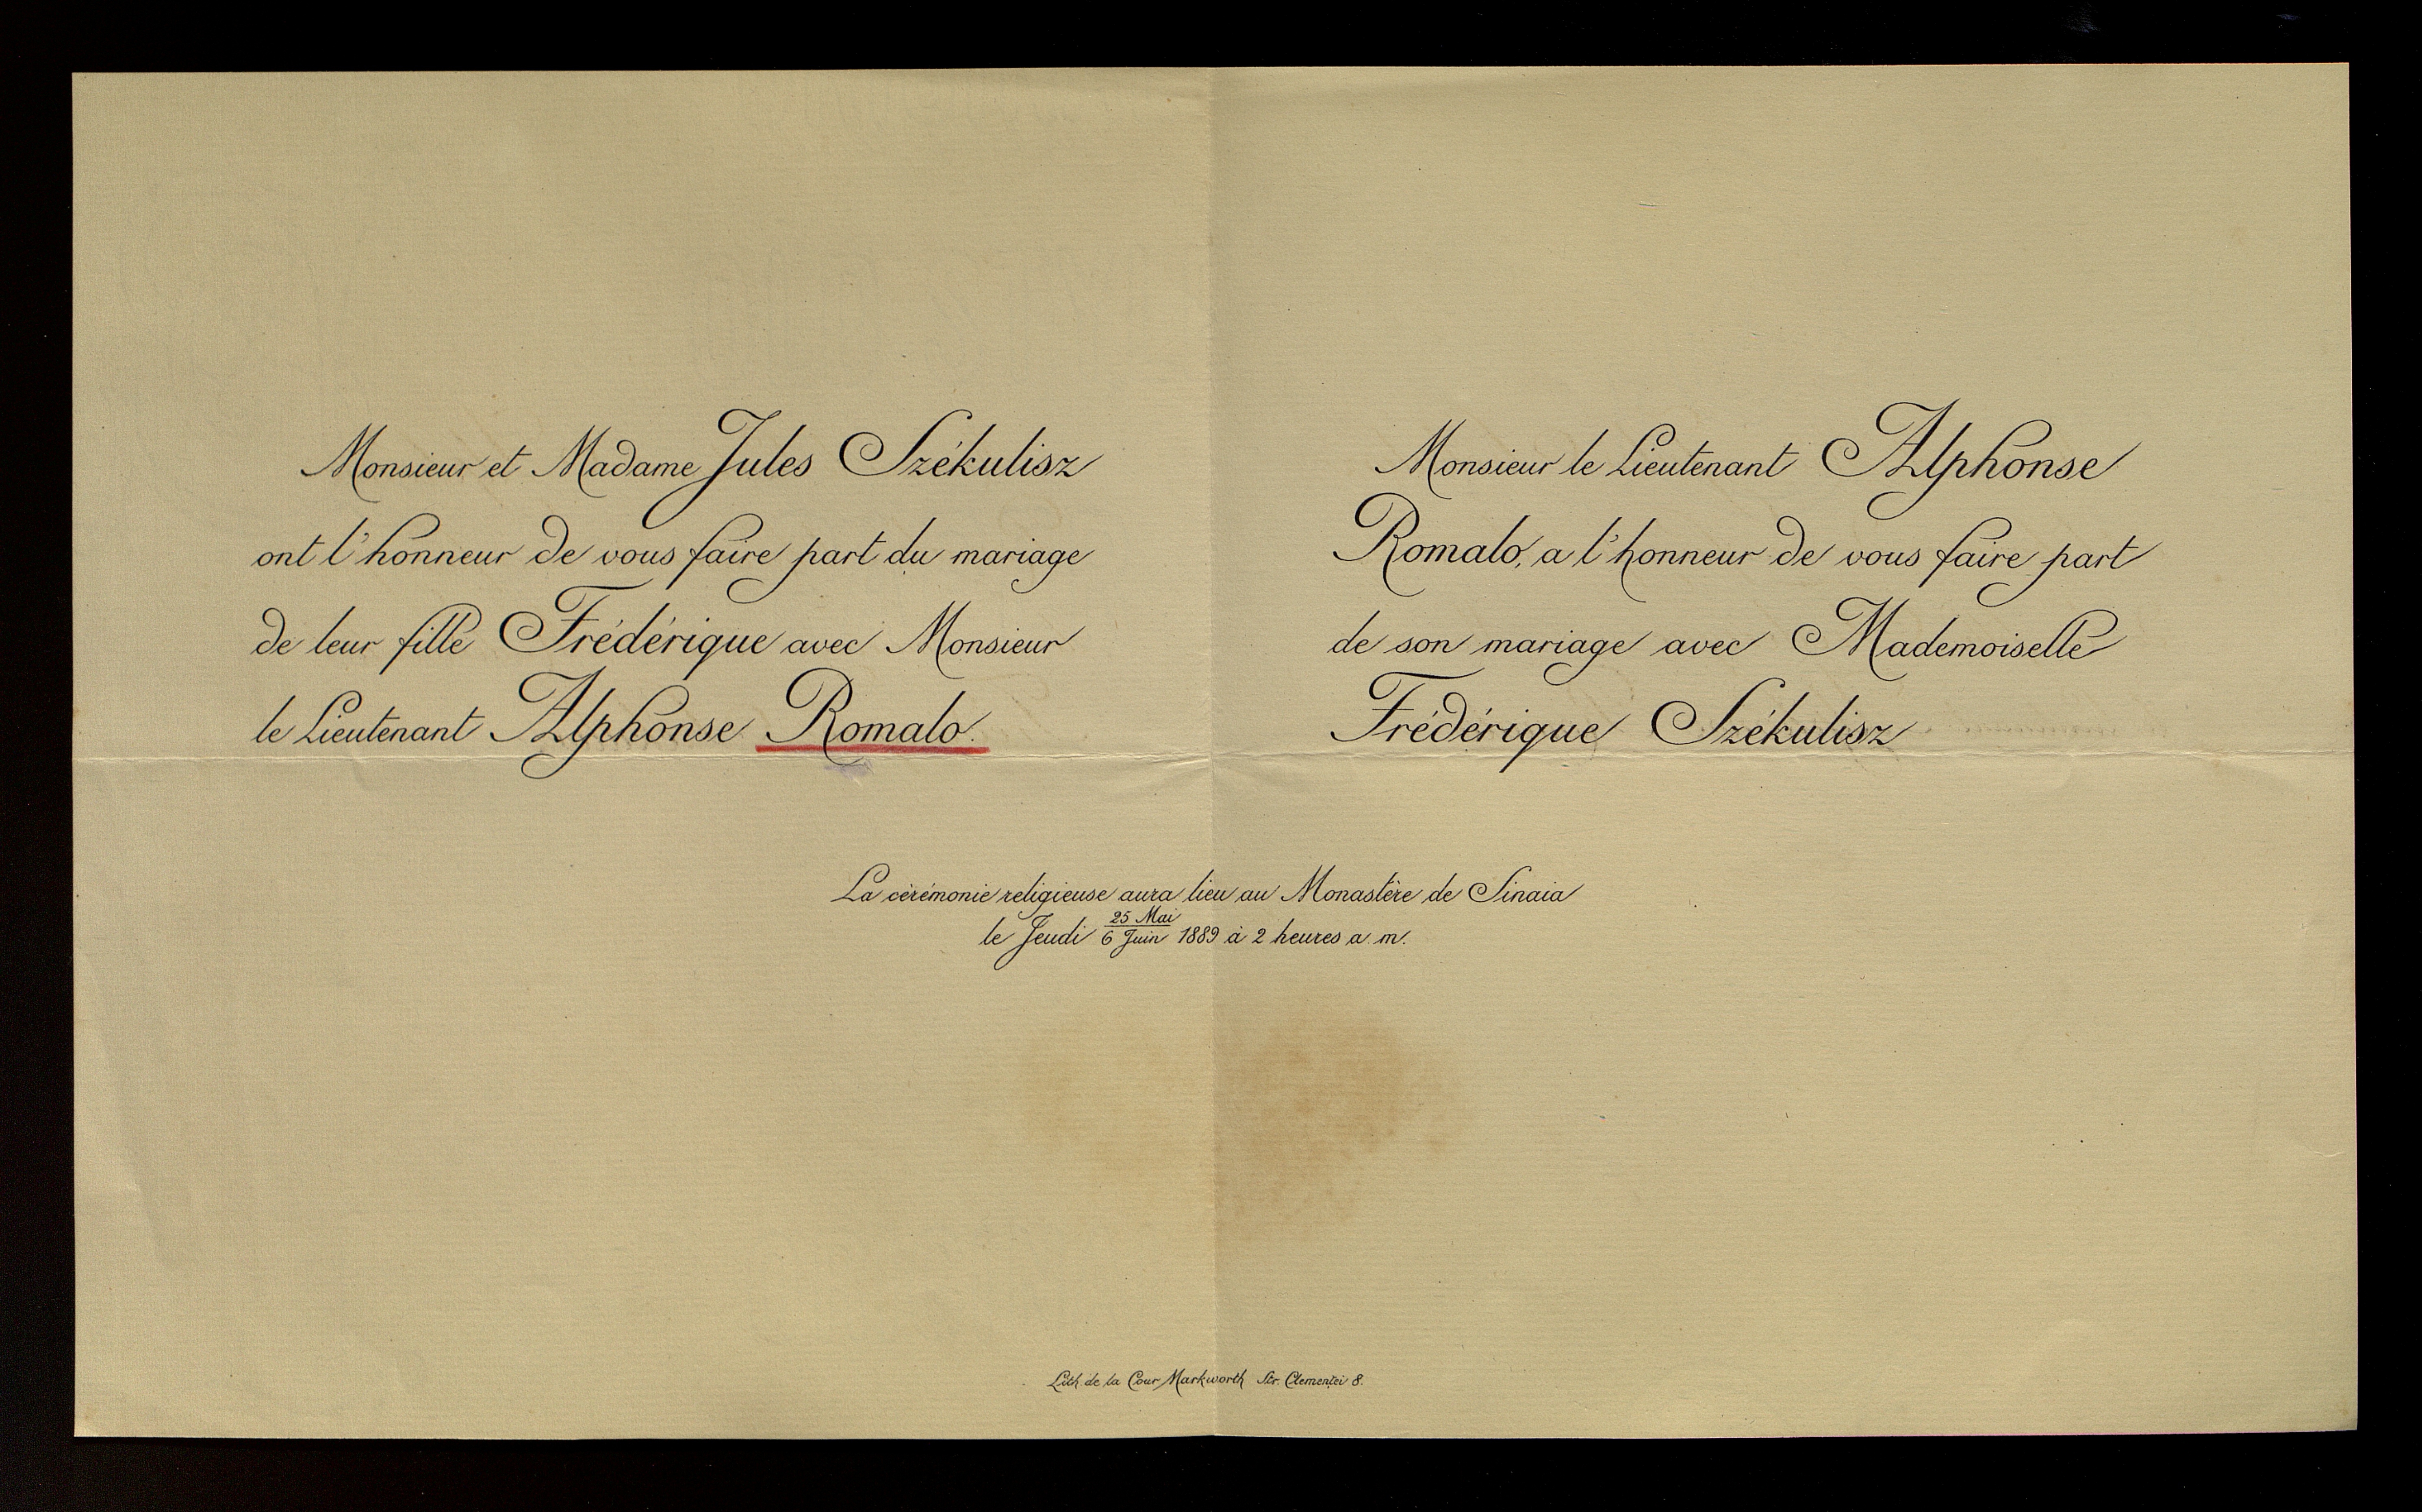 Monsieur et Madame Jules Székulisz
ont l'honneur de vous faire part du mariage
de leur fille Frédérique avec Monsieur
le Lieutenant Alphonse Romalo.
Monsieur le Lieutenant Alphonse
Romalo, a l'honneur de vous faire part
de son mariage avec Mademoiselle
Frédérique Székulisz
La cérémonie religieuse aura lieu au Monastère de Sinaia
le Jeudi 25 Mai / 6 Juin 1889 à 2 heures a. m.
Lith. de la Cour Markworth Str. Clemenței 8.